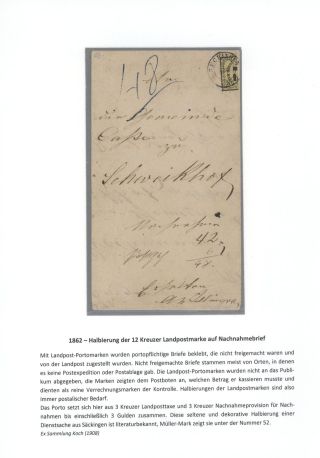 48
die Gemeinde
Casse
zu
Schweikhof
Nachnahme
42
6
48.
Erhalten
1862 – Halbierung der 12 Kreuzer Landpostmarke auf Nachnahmebrief
Mit Landpost-Portomarken wurden portopflichtige Briefe beklebt, die nicht freigemacht waren und
von der Landpost zugestellt wurden. Nicht freigemachte Briefe stammen meist von Orten, in denen
es keine Postexpedition oder Postablage gab. Die Landpost-Portomarken wurden nicht an das Publi-
kum abgegeben, die Marken zeigten dem Postboten an, welchen Betrag er kassieren musste und
dienten als reine Verrechnungsmarken der Kontrolle. Halbierungen der Landpostmarken sind also
immer postalischer Bedarf.
Das Porto setzt sich hier aus 3 Kreuzer Landposttaxe und 3 Kreuzer Nachnahmeprovision für Nach-
nahmen bis einschließlich 3 Gulden zusammen. Diese seltene und dekorative Halbierung einer
Dienstsache aus Säckingen ist literaturbekannt, Müller-Mark zeigt sie unter der Nummer 52.
Ex Sammlung Koch (1908)